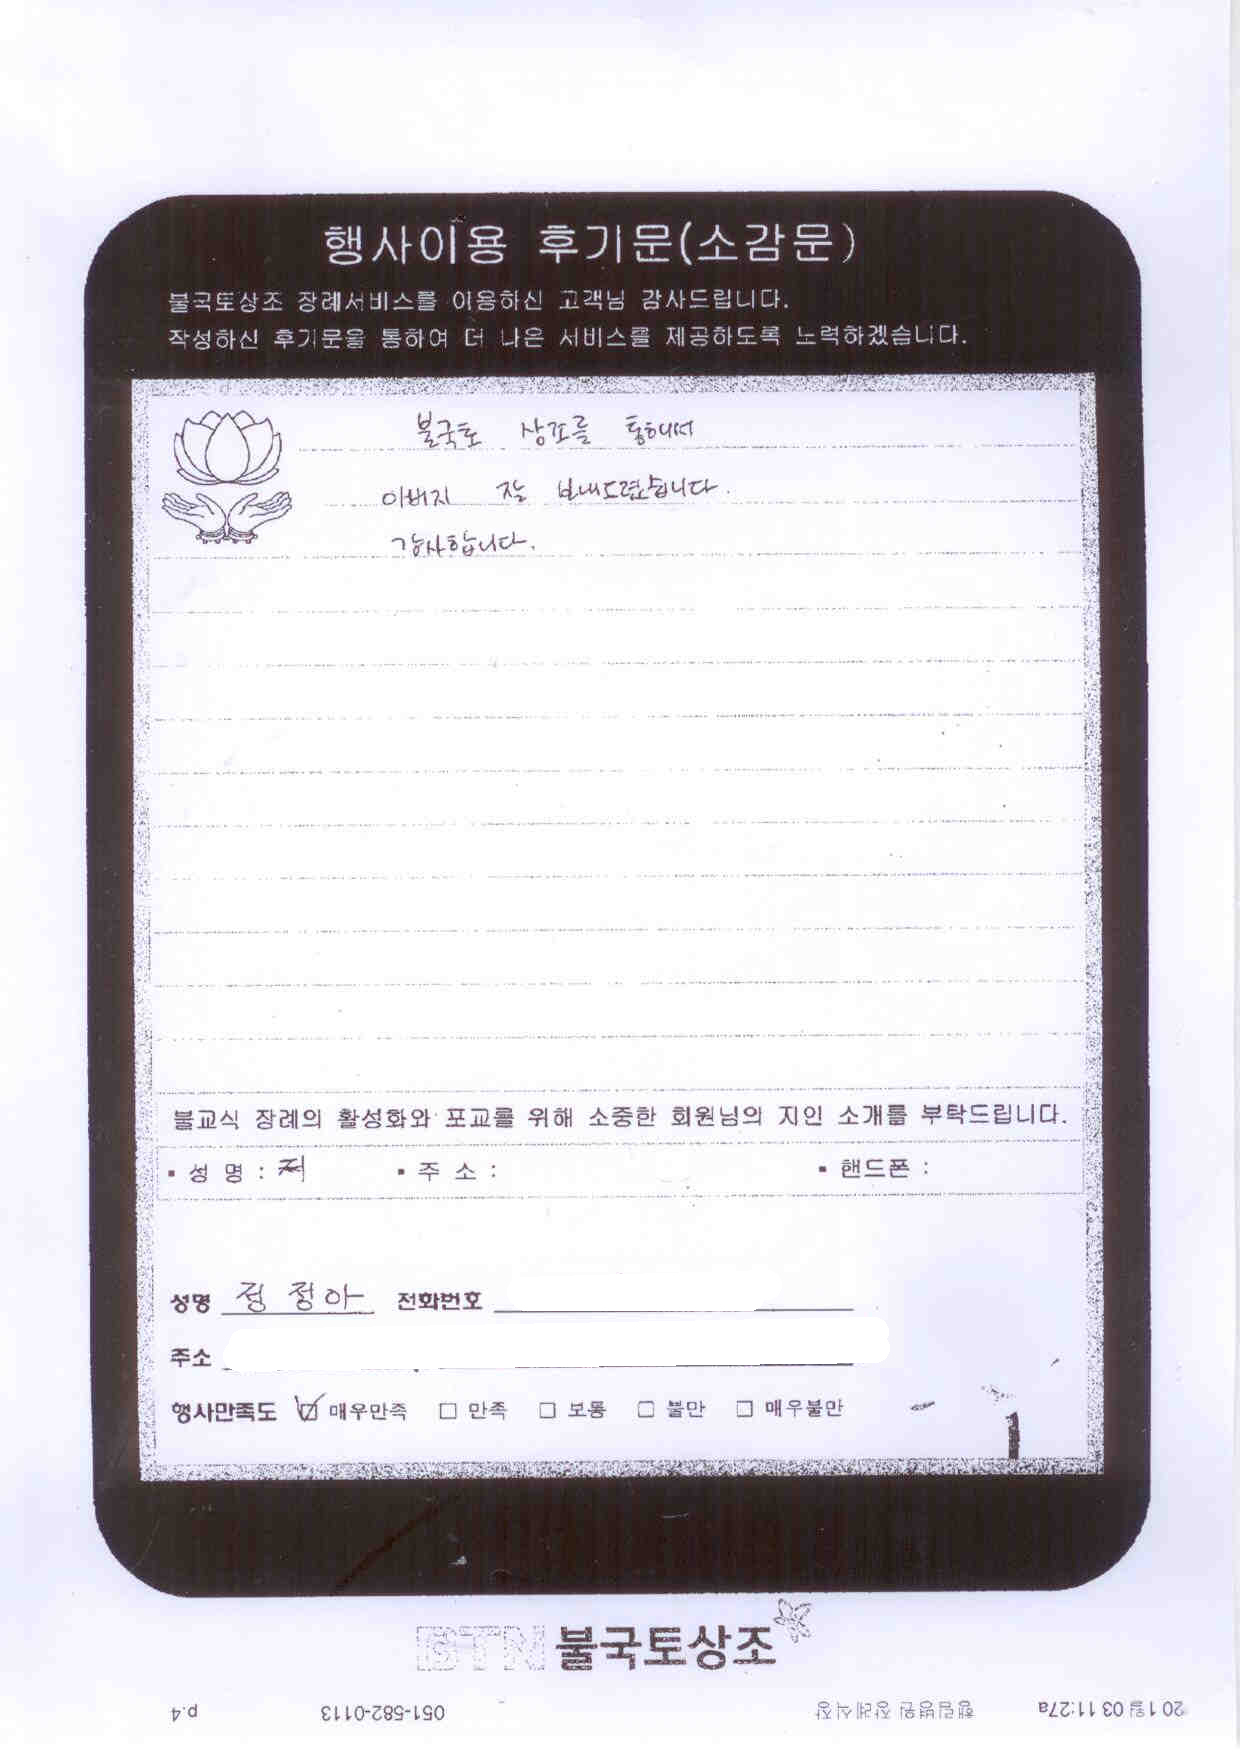 행사이용 후기문(소감문)
불국토상조 장례서비스를 이용하신 고객님 감사드립니다.
작성하신 후기문을 통하여 더 나은 서비스를 제공하도록 노력하겠습니다.
불국토 상조를 통해서
아버지 잘 보내드렸습니다.
감사합니다.
불교식 장례의 활성화와 포교를 위해 소중한 회원님의 지인 소개를 부탁드립니다.
▪ 성 명 : ▪ 주 소 : ▪ 핸드폰 :
성명 정 정아 전화번호
주소
행사만족도 ☑ 매우만족 □ 만족 □ 보통 □ 불만 □ 매우불만
BTN 불국토상조
20 1월 03 11:27a 행림병원 장례식장 051-582-0113 p.4